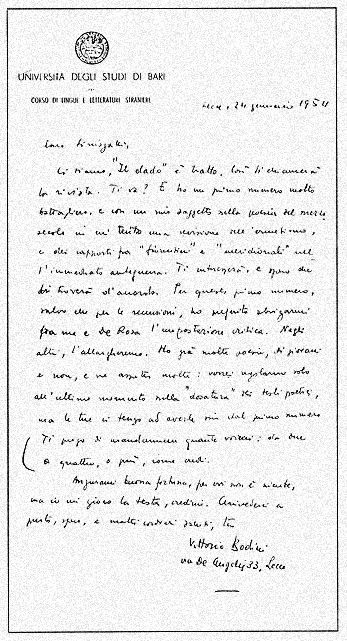 UNIVERSITÀ DEGLI STUDI DI BARI
CORSO DI LINGUE E LETTERATURE STRANIERE
Lecce, 24 gennaio 1954
Caro Sinisgalli,
Ci siamo, "Il dado" è tratto. Così si chiamerà
la rivista. Ti va? È ho un primo numero molto
battagliero, e con un mio saggetto sulla poesia del mezzo
secolo in cui tento una revisione dell'ermetismo,
e dei rapporti fra "fiorentini" e "meridionali" nel
l'immediato anteguerra. Ti interesserà, e spero che
ti troverà d'accordo. Per questo primo numero,
salvo che per le recensioni, ho preferito sbrigarmi
fra me e De Rosa l'impostazione critica. Negli
altri, l'allargheremo. Ho già molte poesie, di giovani
e non, e ne aspetto molte: vorrei regolarmi solo
all'ultimo momento sulla "dosatura" dei testi poetici,
ma le tue ci tengo ad averle sin dal primo numero
Ti prego di mandarmene quante vorrai: da due
a quattro, o più, come credi.
Augurami buona fortuna, per voi non è niente,
ma io mi gioco la testa, credimi. Arrivederci a
presto, spero, e molti cordiali saluti, tuo
Vittorio Bodini
via De Angelis 33, Lecce